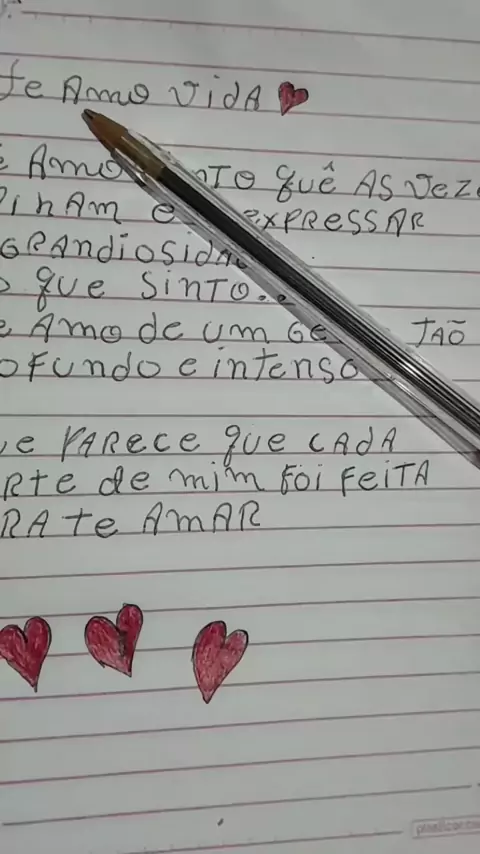 te Amo vidA
AmO QUÊ AS VEZE
EXPRESSAR
GRANdiosidA
O QUE SINTO..
E AMO de um GE TÃO
OFUNDO e intenso
ue PARECE que CADA
RTE de mim FOI FEITA
RA te AMAR